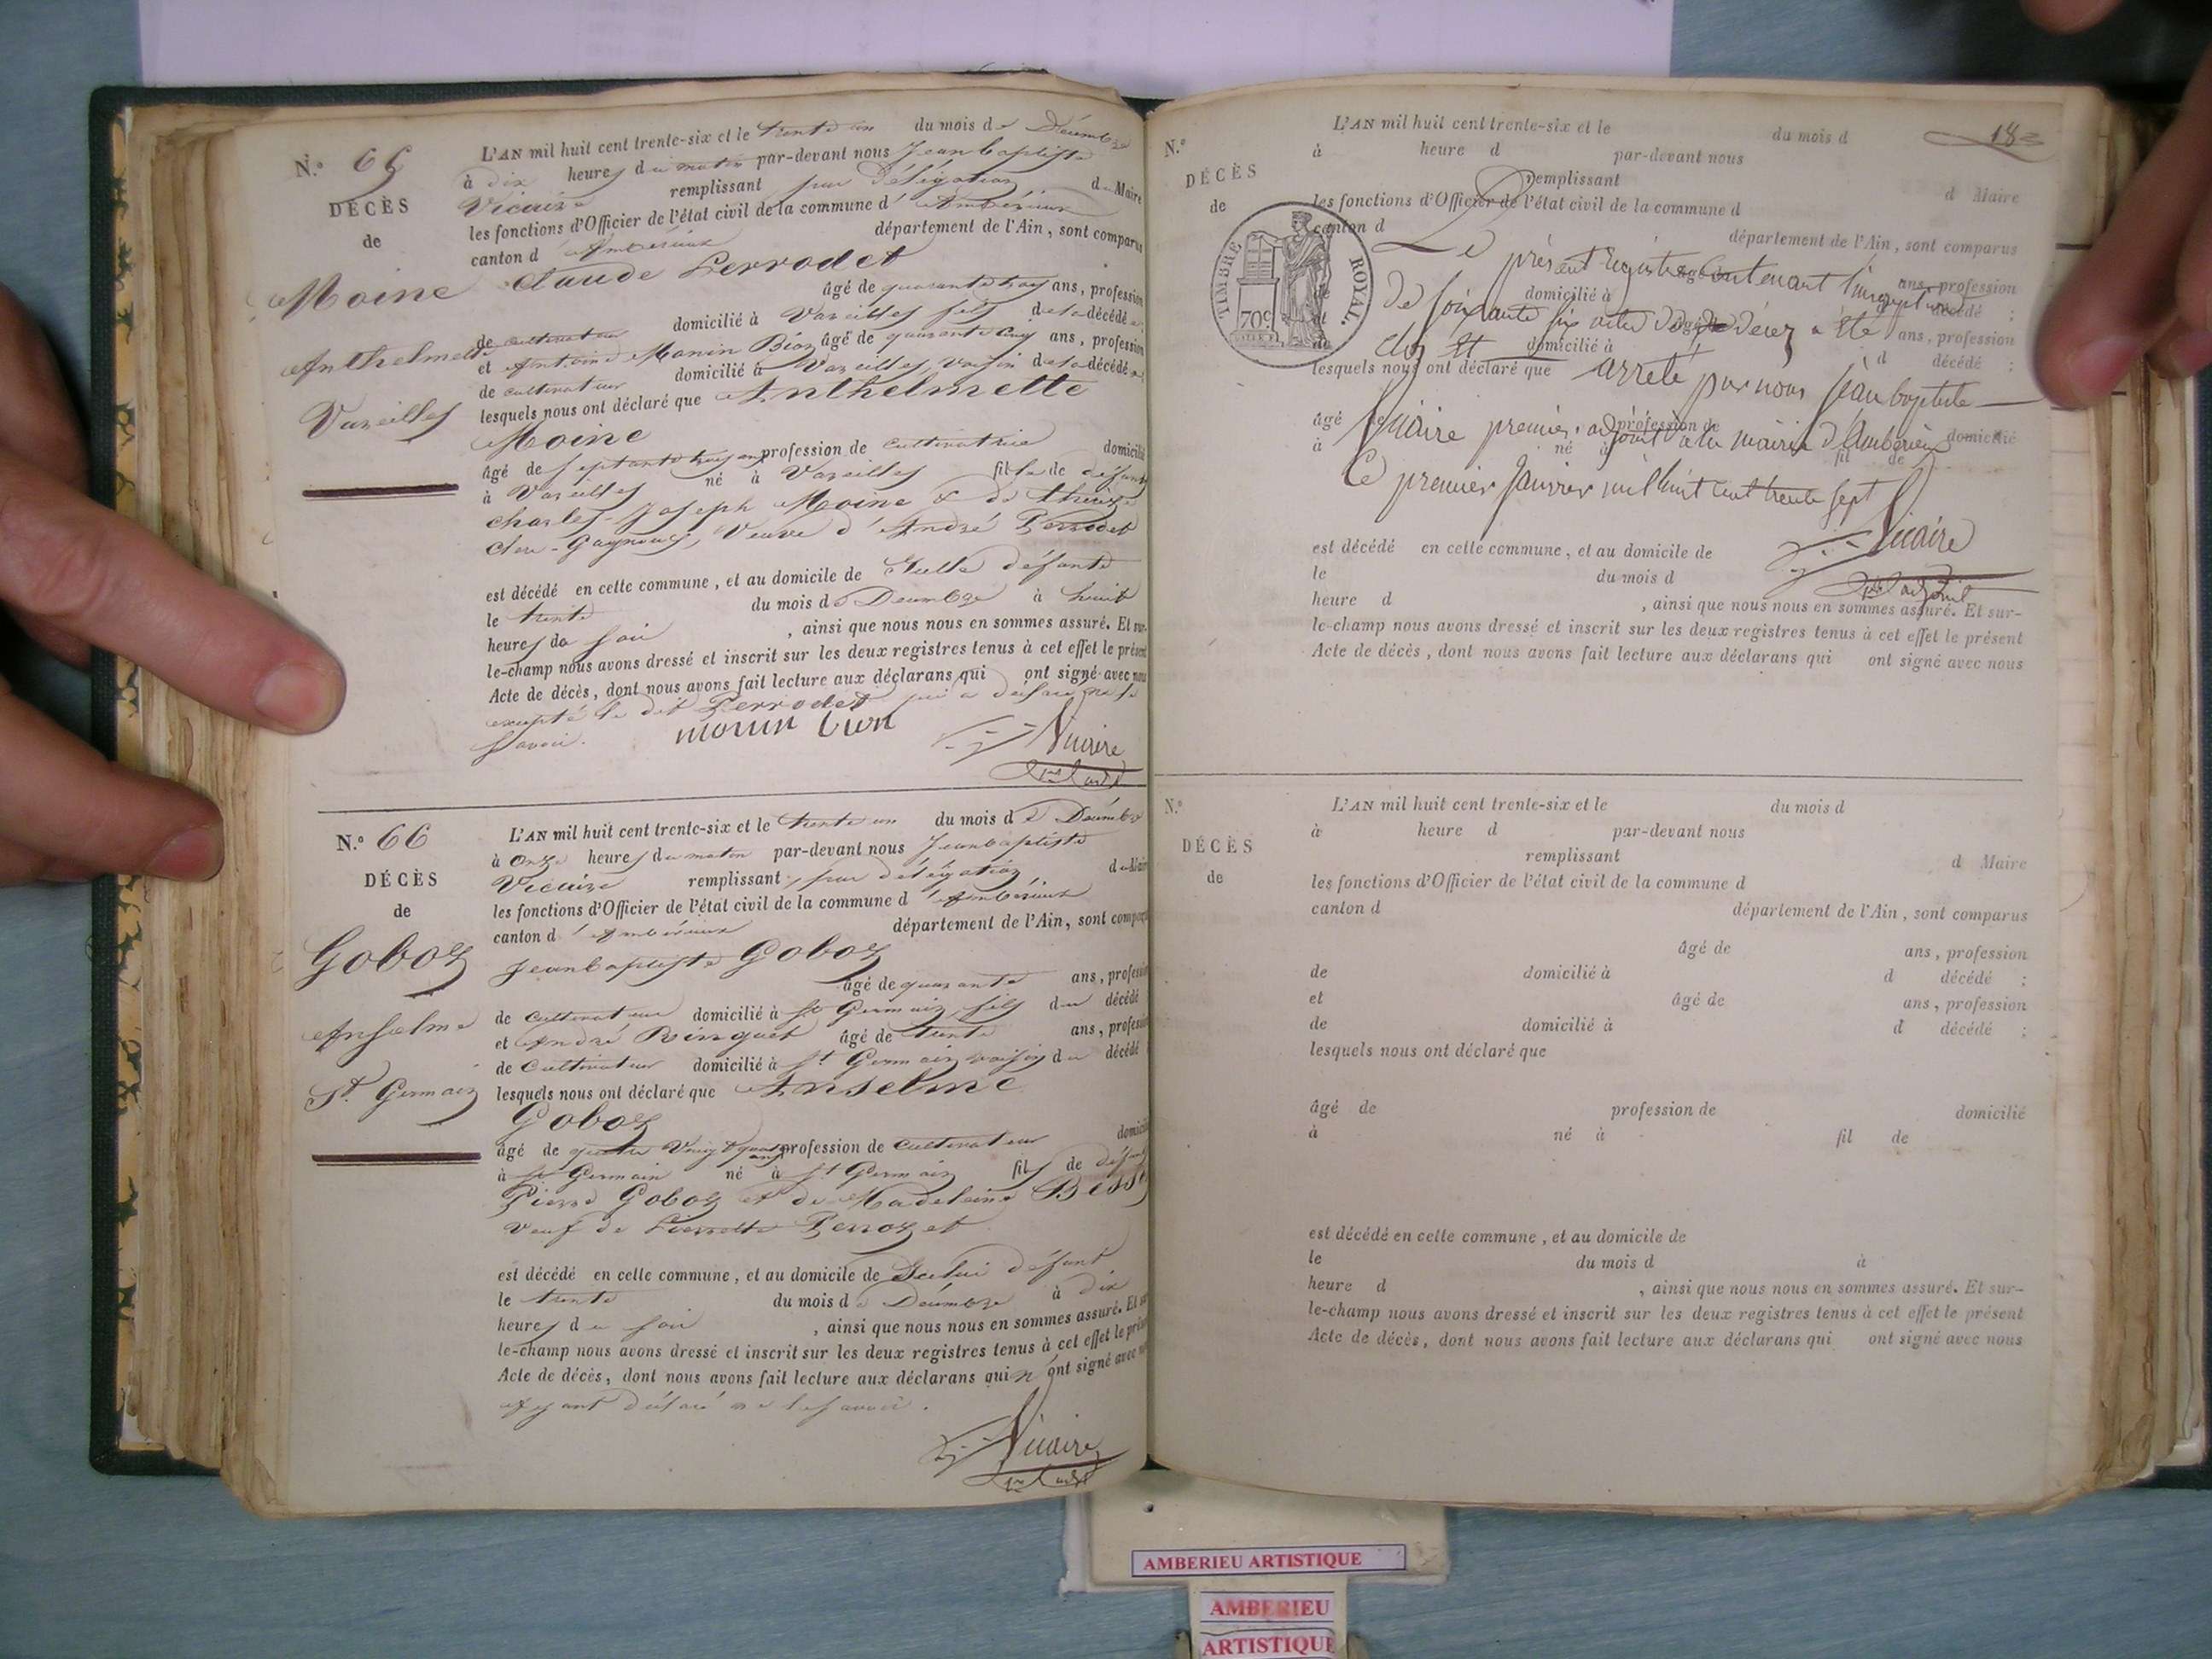 N.° 65
DÉCÈS
de
Moine
Anthelmette
Vareilles
L'AN mil huit cent trente-six et le trente un du mois de Décembre
à dix heures du matin par-devant nous Jean baptiste
Vicaire remplissant par délégation du Maire
les fonctions d'Officier de l'état civil de la commune d'Ambérieux
canton d'Ambérieux département de l'Ain, sont comparus
Claude Perrodet
âgé de quarante trois ans, profession
de cultivateur domicilié à Vareilles fils de la décédée
et Antoine Monin Bion âgé de quarante cinq ans, profession
de cultivateur domicilié à Vareilles, voisin de la décédée
lesquels nous ont déclaré que Anthelmette
Moine
âgé de septante trois ans profession de cultivatrice domicilié
à Vareilles né à Vareilles fille de défunt
Charles-Joseph Moine & de
Veuve d'André Perrodet
est décédé en cette commune, et au domicile de défunte
le trente du mois de Décembre à huit
heures du soir, ainsi que nous nous en sommes assuré. Et sur-
le-champ nous avons dressé et inscrit sur les deux registres tenus à cet effet le présent
Acte de décès, dont nous avons fait lecture aux déclarans qui ont signé avec nous
excepté le dit Perrodet qui a déclaré ne le
savoir.
monin bion
Vicaire
N.° 66
DÉCÈS
de
Goboz
Anselme
St. Germain
L'AN mil huit cent trente-six et le trente un du mois de Décembre
à onze heures du matin par-devant nous Jean baptiste
Vicaire remplissant par délégation du Maire
les fonctions d'Officier de l'état civil de la commune d'Ambérieux
canton d'Ambérieux département de l'Ain, sont comparus
Jean baptiste Goboz
âgé de quarante ans, profession
de cultivateur domicilié à St Germain, fils du décédé
et André Ringuet âgé de trente ans, profession
de Cultivateur domicilié à St. Germain voisin du décédé
lesquels nous ont déclaré que Anselme
Goboz
âgé de quatre vingt quatre ans profession de cultivateur domicilié
à St Germain né à St Germain fils de défunt
Pierre Goboz et de Madeleine Bess
veuf de Pierrette Perrozet
est décédé en cette commune, et au domicile de défunt
le trente du mois de Décembre à dix
heures du soir, ainsi que nous nous en sommes assuré. Et sur
le-champ nous avons dressé et inscrit sur les deux registres tenus à cet effet le présent
Acte de décès, dont nous avons fait lecture aux déclarans qui n'ont signé avec nous
ayant déclaré ne le savoir.
Vicaire
18
N.°
DÉCÈS
de
TIMBRE ROYAL.
70c
L'AN mil huit cent trente-six et le du mois d
à heure d par-devant nous
remplissant d Maire
les fonctions d'Officier de l'état civil de la commune d
canton d département de l'Ain, sont comparus
Le présent Registre contenant l'inscription
âgé de ans, profession
de domicilié à d décédé :
de soixante six actes de décez a été
et âgé de ans, profession
clos et arrêté par nous Jean baptiste
de domicilié à d décédé :
lesquels nous ont déclaré que
Vicaire premier adjoint à la mairie d'Ambérieux
âgé de profession de domicilié
à né à fil de
Ce premier Janvier mil huit cent trente sept
Vicaire
1er adjoint
est décédé en cette commune, et au domicile de
le du mois d
heure d , ainsi que nous nous en sommes assuré. Et sur-
le-champ nous avons dressé et inscrit sur les deux registres tenus à cet effet le présent
Acte de décès, dont nous avons fait lecture aux déclarans qui ont signé avec nous
N.°
DÉCÈS
de
L'AN mil huit cent trente-six et le du mois d
à heure d par-devant nous
remplissant d Maire
les fonctions d'Officier de l'état civil de la commune d
canton d département de l'Ain, sont comparus
âgé de ans, profession
de domicilié à d décédé :
et âgé de ans, profession
de domicilié à d décédé :
lesquels nous ont déclaré que
âgé de profession de domicilié
à né à fil de
est décédé en cette commune, et au domicile de
le du mois d à
heure d , ainsi que nous nous en sommes assuré. Et sur-
le-champ nous avons dressé et inscrit sur les deux registres tenus à cet effet le présent
Acte de décès, dont nous avons fait lecture aux déclarans qui ont signé avec nous
AMBERIEU ARTISTIQUE
AMBERIEU
ARTISTIQUE